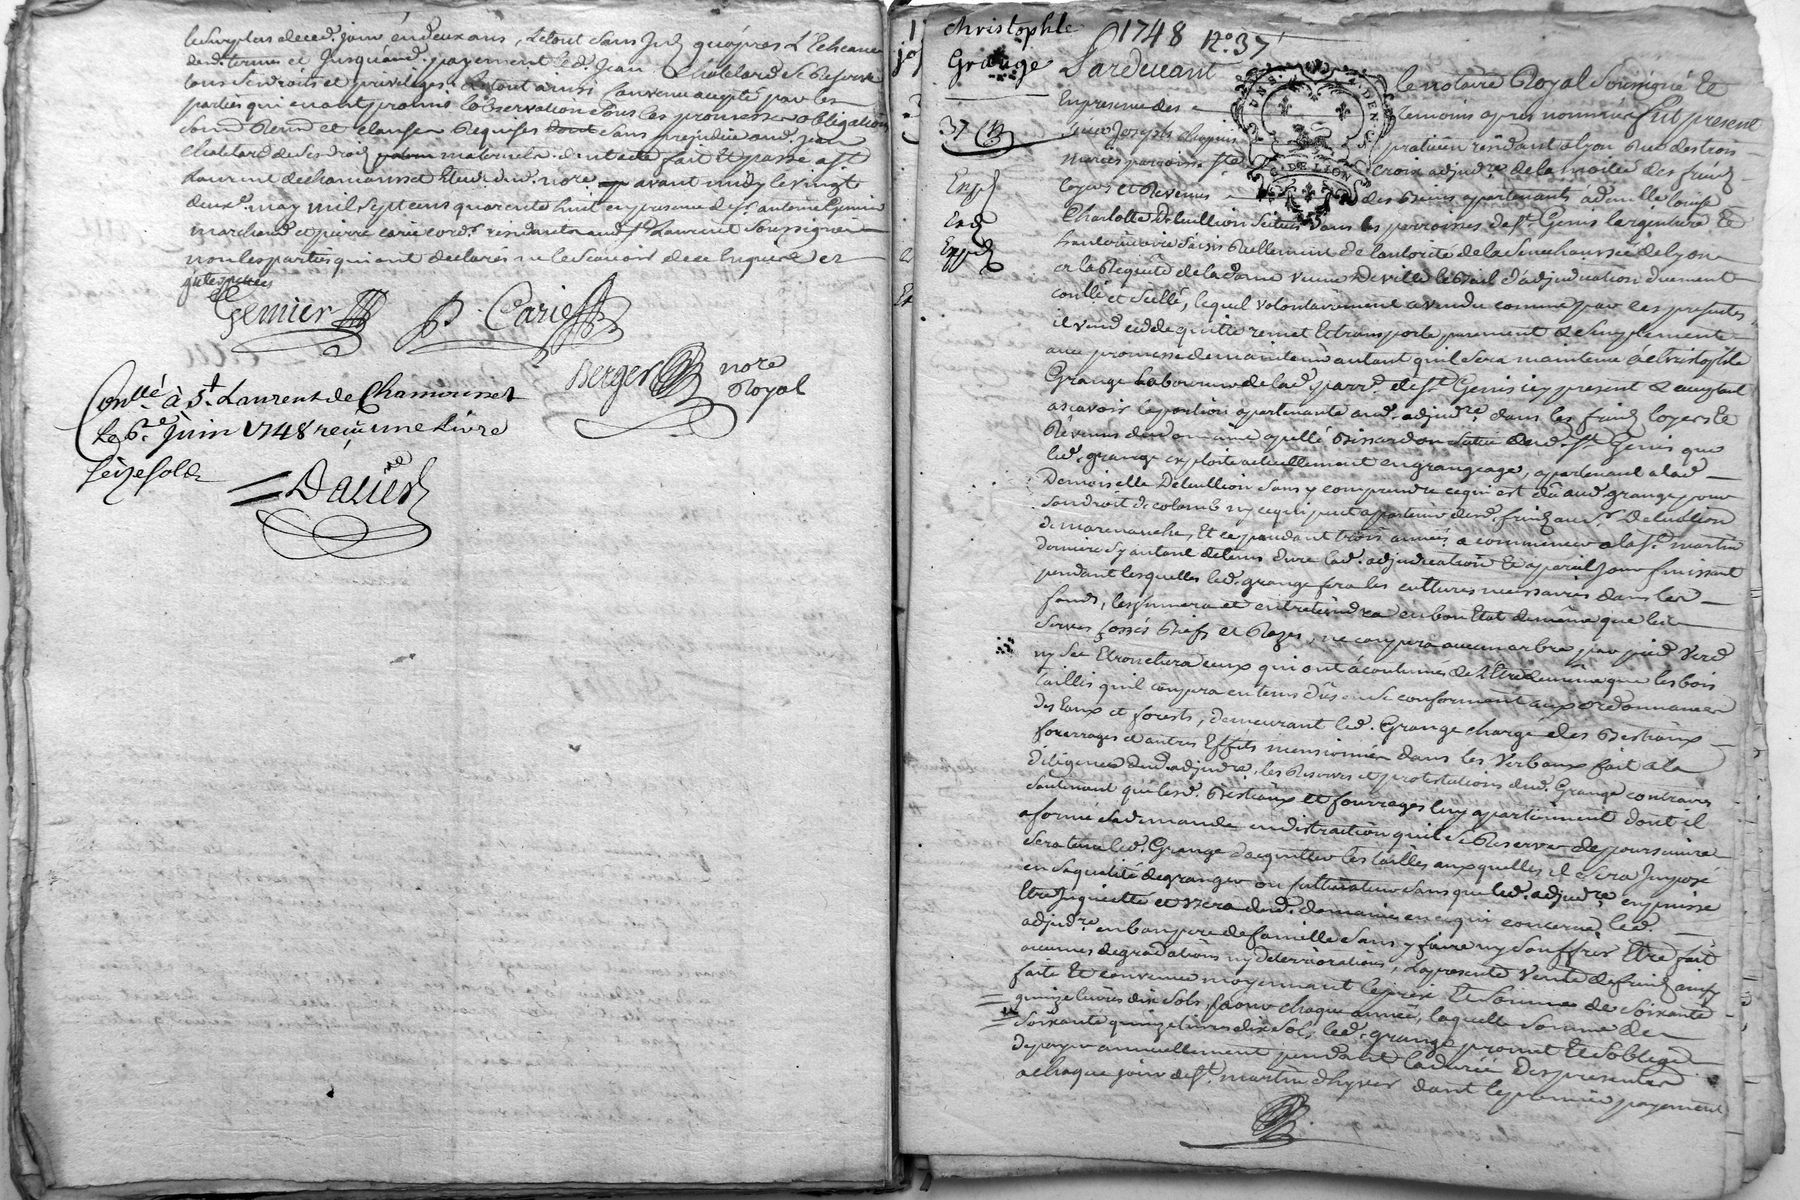 le surplus de ced. jour en deux ans, le tout sans
dud. terme et jusquau d. payement led. Jean Chatelard se reserve
tous ses droits et privileges. Le tout ainsi convenu accepté par les
parties qui en ont promis l'observation sous les promesses obligations
soum. Renon et clauses Requises sans prejudice aud. jean
Chatelard de ses droits maternels. dont acte fait et passé a St
Laurent de chamousset Etude dud. nore. avant midy le vingt
deuxe. may mil sept cens quarente huit en presence de sr. antoine Genier
marchand et pierre carie cord. residants aud. St. Laurent Soussignés
non les parties qui ont declarés ne le scavoir de ce Enquis et
interpellés
Genier P. Carie
Berger nore
Royal
Conllé à St. Laurent de Chamousset
le 6e. Juin 1748 reçu une Livre
seize sols
Daviet
Christophle 1748 No. 37
Grange Pardevant le notaire Royal Soussigné et
En presence des temoins apres nommés fut present
37 sieur Joseph praticien résidant a lyon Rue des trois
maries parroisse Ste croix adjudre. de la moitié des fruits
Exp loyers et Revenus des biens appartenants a demlle louise
Exp Charlotte Deluillion Situés dans les parroisses de St. Genis largentiere et
Expd hauterivoire Saisis Réellement de l'autorité de la Senechaussée de lyon
et la Requête de la dame veuve Deville le Bail d'adjudication duement
conllé et Scellé, lequel volontairement a vendu comme par ces presentes
il vend cede quitte remet et transporte purement et Simplement
avec promesse de maintenir autant quil Sera maintenu a Christophle
Grange Laboureur de lad. parre. de St. Genis icy present et acceptant
ascavoir la portion apartenante aud. adjudre. dans les fruits loyers et
Revenus du domaine apellé Bissardon Situé aud. St. Genis que
led. Grange exploite actuellement en grangeage, apartenant a lad.
Demoiselle Deluillion Sans y comprendre ce qui est dû aud. grange pour
Son droit de colomb ny ce qui peut apartenir desd. fruits au Sr. Deluillion
de maremanche, Et ce pendant trois années a commencer a la St. martin
derniere Sy autant de tems dure lad. adjudication Et a pareil jour finissant
pendant lesquelles led. grange fera les cultures necessaires dans les
fonds, les fumera et entretiendra en bon Etat de même que les
Serves fossés Biefs et Rases, ne coupera aucun arbre par pied verd
ny Sec Etronchera ceux qui ont acoutumés de l'Etre de même que les bois
taillis quil coupera en tems dûs en Se conformant aux ordonnances
des Eaux et forests, demeurant led. Grange chargé des Bestiaux
fourrages et autres Effets mensionnés dans les verbaux fait a la
diligence dud. adjudre., les Reserves et protestations dud. Grange contraires
Soutenant que lesd. Bestiaux et fourrages luy apartiennent dont il
a formé Sa demande en distraction quil Se Reserve de poursuivre
Sera tenu led. Grange d'acquitter les tailles auxquelles il Sera Imposé
en Sa qualité de granger ou cultivateur Sans que led. adjudre. en puisse
Etre Inquietté et usera dud. domaine en ce qui concerne led.
adjudre. en bon pere de famille Sans y faire ny Souffrir Etre fait
aucunes degradations ny deterriorations, La presente vente de fruits ainsy
faite Et convenue moyennant le prix Et Somme de Soixante
quinze livres dix Sols, pour chaque année, laquelle Somme de
Soixante quinze livres dix Sols, led. grange promet Et S'oblige
de payer annuellement pendant la durée des presentes
a chaque jour de St. martin dhyver dont le premier payement